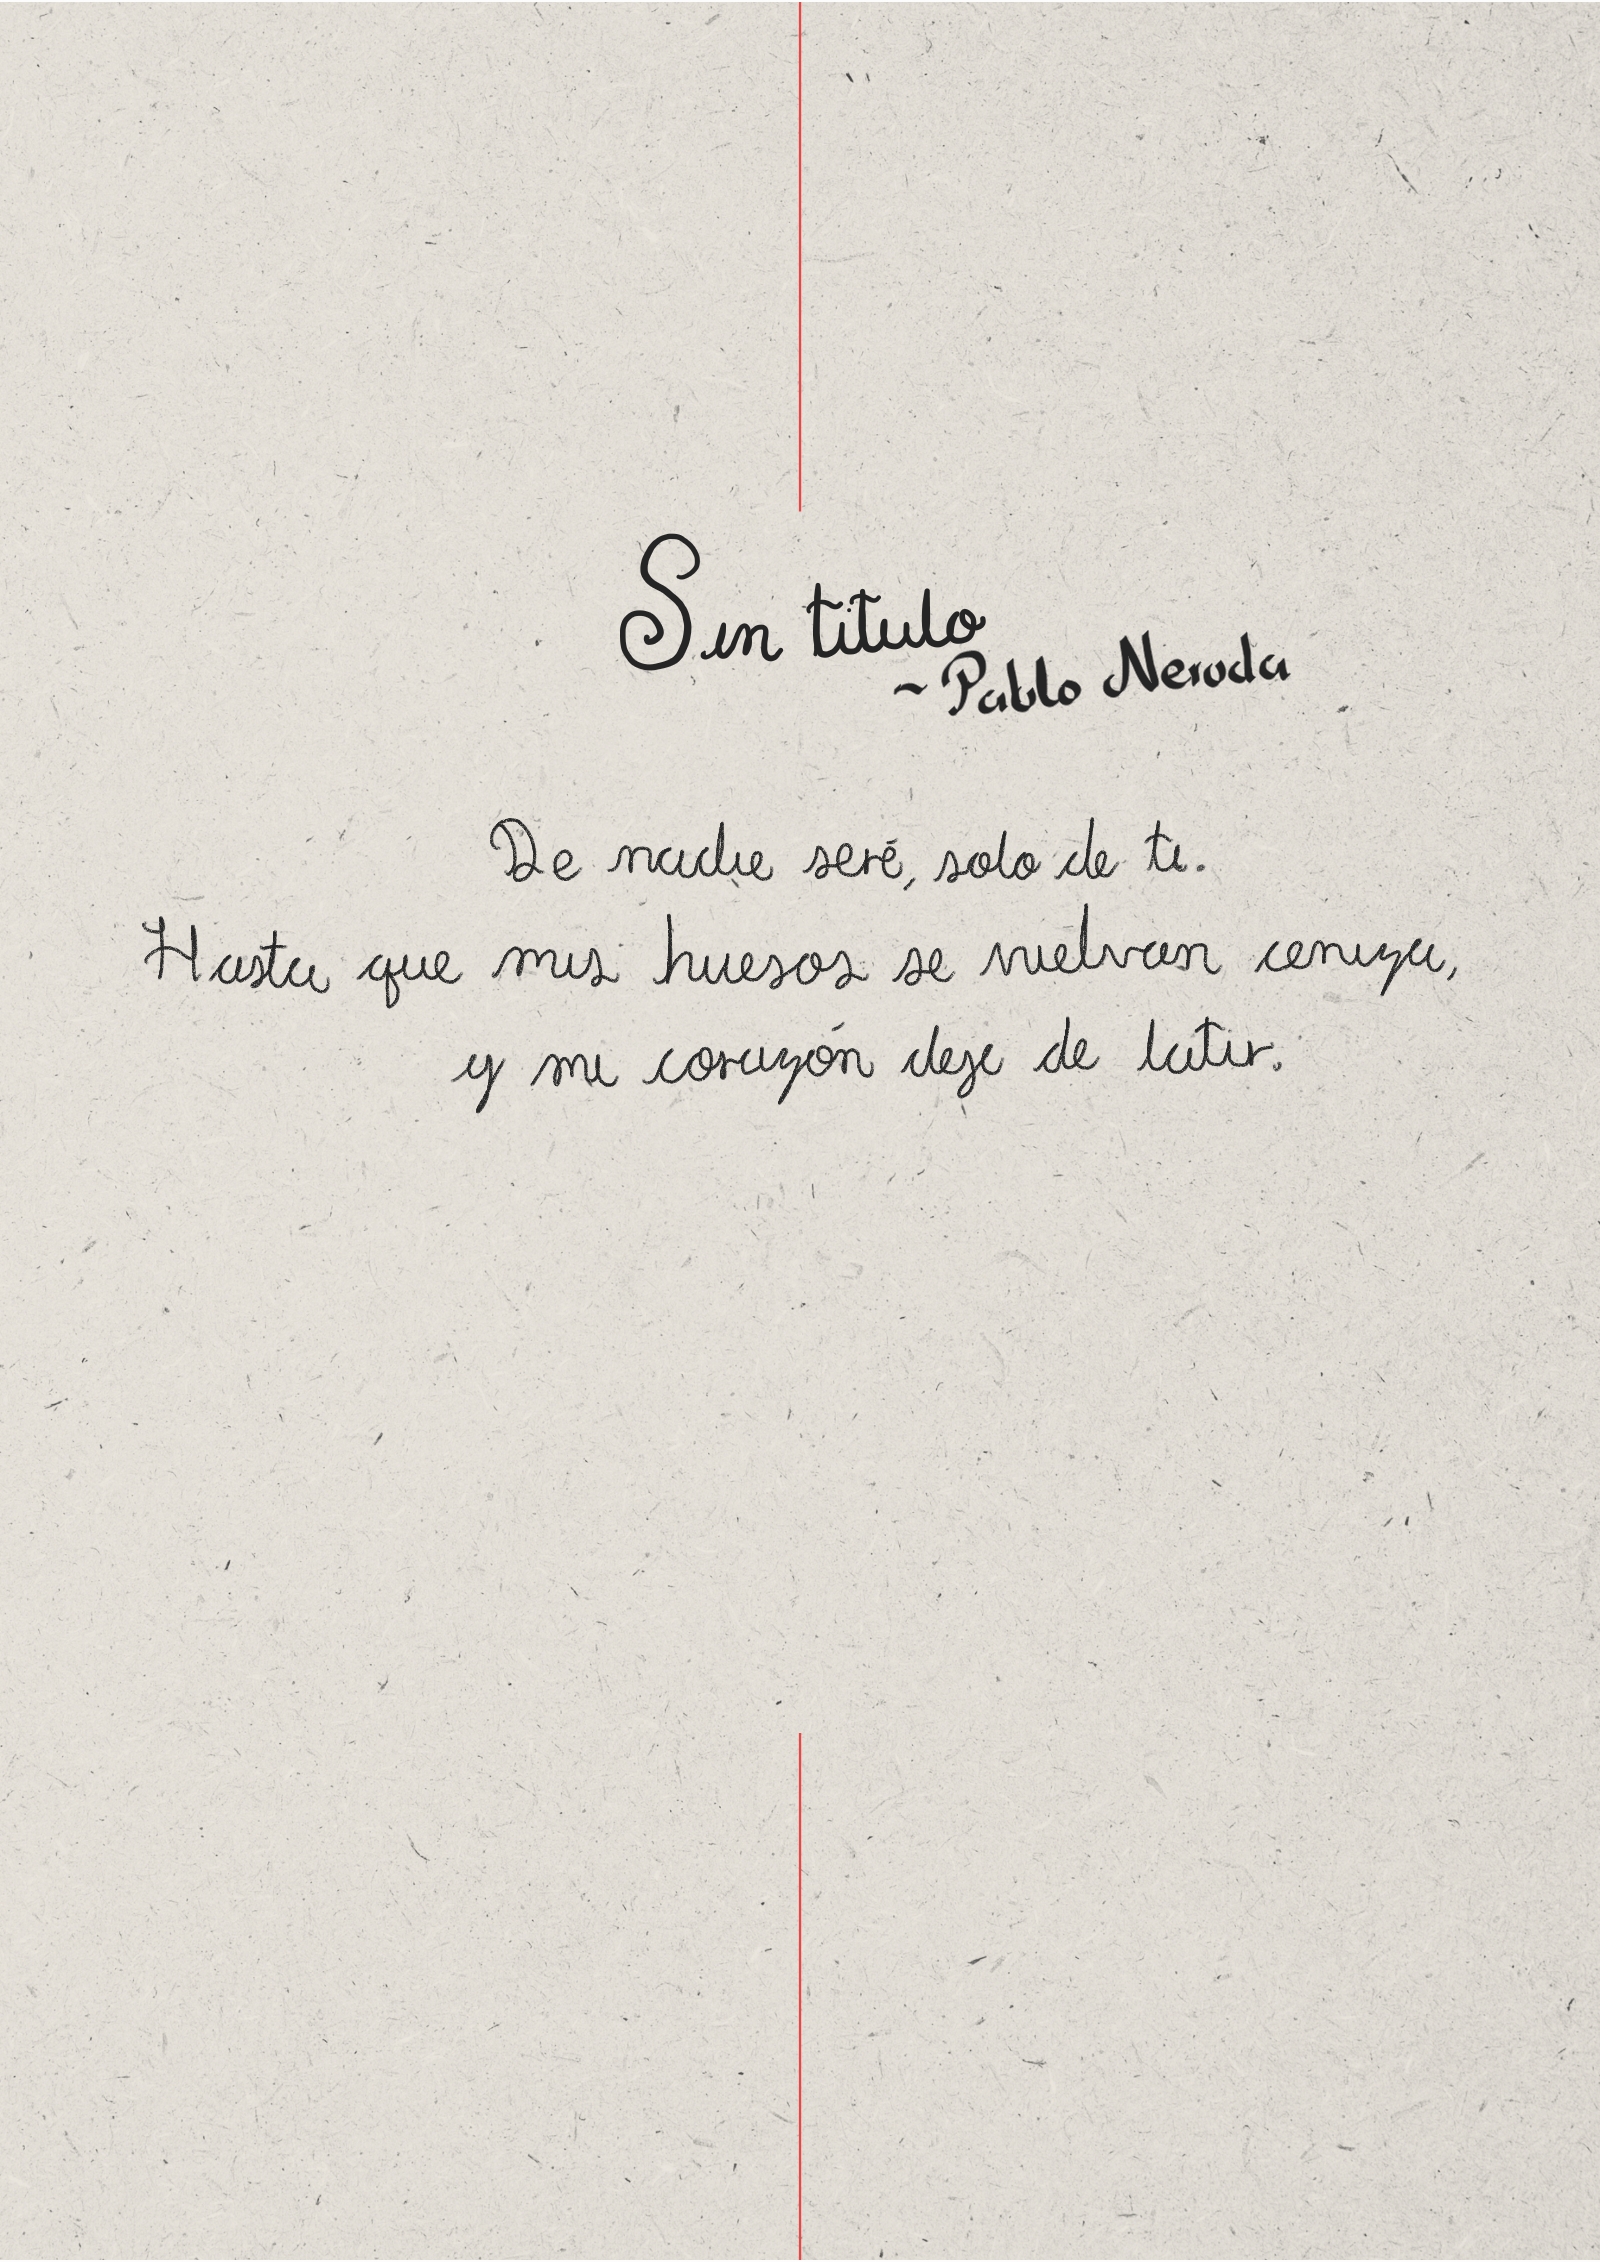 Sin titulo
~ Pablo Neroda
De nadie seré, solo de ti.
Hasta que mis huesos se vuelvan ceniza,
y mi corazón deje de latir.